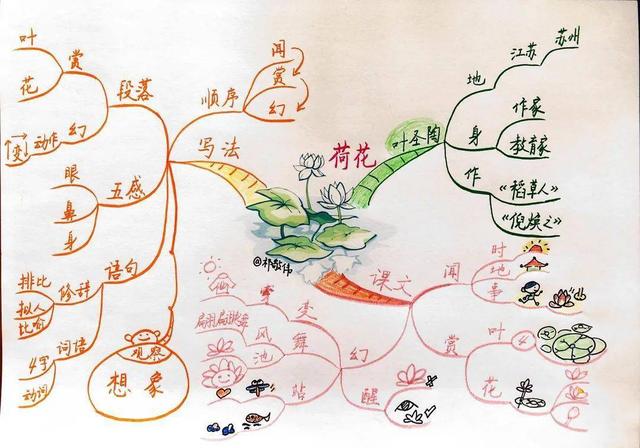 荷花
@祁敬伟
叶圣陶
地
江苏
苏州
身
作家
教育家
作
《稻草人》
《倪焕之》
课文
闻
时
地
事
赏
叶
花
幻
变
舞
风
池
站
醒
翩翩起舞
写法
顺序
闻
赏
幻
段落
赏
叶
花
幻
动作
变
五感
眼
鼻
身
语句
修辞
排比
拟人
比喻
词语
4字
动词
观察
想象